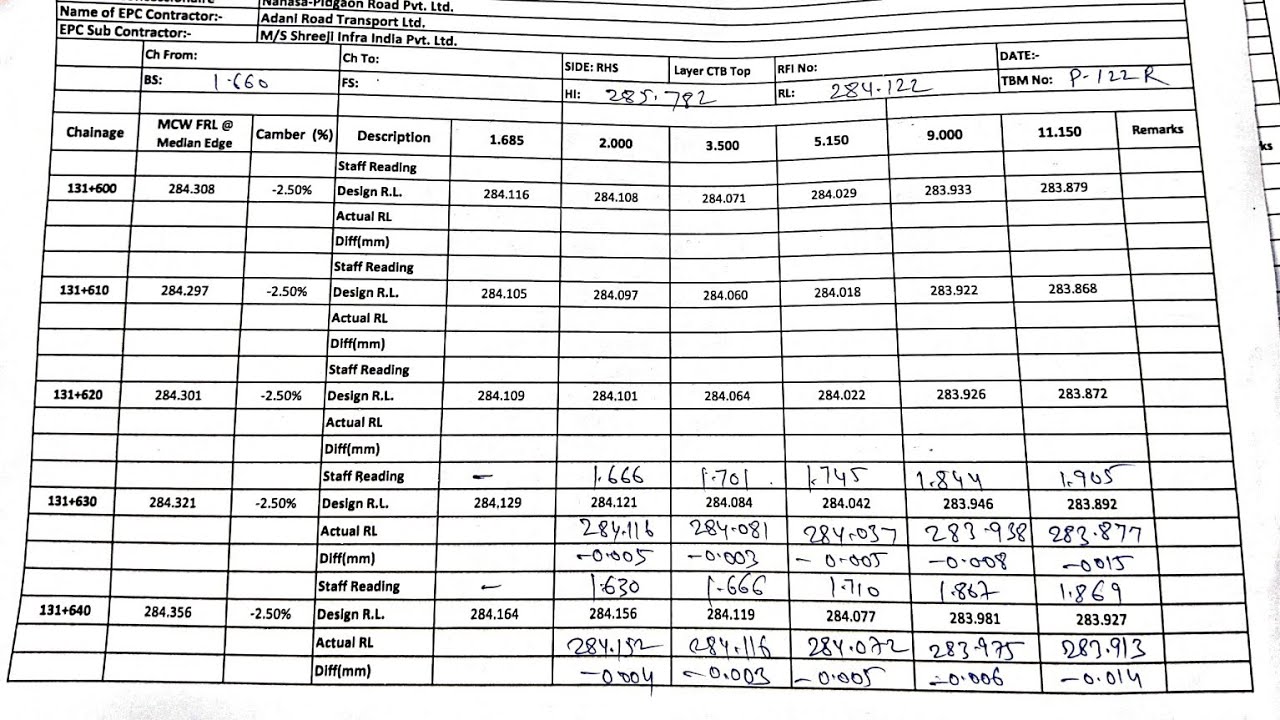 Nahasa-Pidgaon Road Pvt. Ltd.
Name of EPC Contractor:- Adani Road Transport Ltd.
EPC Sub Contractor:- M/S Shreeji Infra India Pvt. Ltd.
Ch From: Ch To: SIDE: RHS Layer CTB Top RFI No: DATE:-
BS: 1.660 FS: HI: 285.782 RL: 284.122 TBM No: P-122R
Chainage MCW FRL @ Median Edge Camber (%) Description 1.685 2.000 3.500 5.150 9.000 11.150 Remarks
Staff Reading
131+600 284.308 -2.50% Design R.L. 284.116 284.108 284.071 284.029 283.933 283.879
Actual RL
Diff(mm)
Staff Reading
131+610 284.297 -2.50% Design R.L. 284.105 284.097 284.060 284.018 283.922 283.868
Actual RL
Diff(mm)
Staff Reading
131+620 284.301 -2.50% Design R.L. 284.109 284.101 284.064 284.022 283.926 283.872
Actual RL
Diff(mm)
Staff Reading - 1.666 1.701 1.745 1.844 1.905
131+630 284.321 -2.50% Design R.L. 284.129 284.121 284.084 284.042 283.946 283.892
Actual RL 284.116 284.081 284.037 283.938 283.877
Diff(mm) -0.005 -0.003 -0.005 -0.008 -0015
Staff Reading - 1.630 1.666 1.710 1.867 1.869
131+640 284.356 -2.50% Design R.L. 284.164 284.156 284.119 284.077 283.981 283.927
Actual RL 284.152 284.116 284.072 283.975 283.913
Diff(mm) -0.004 -0.003 -0.005 -0.006 -0.014